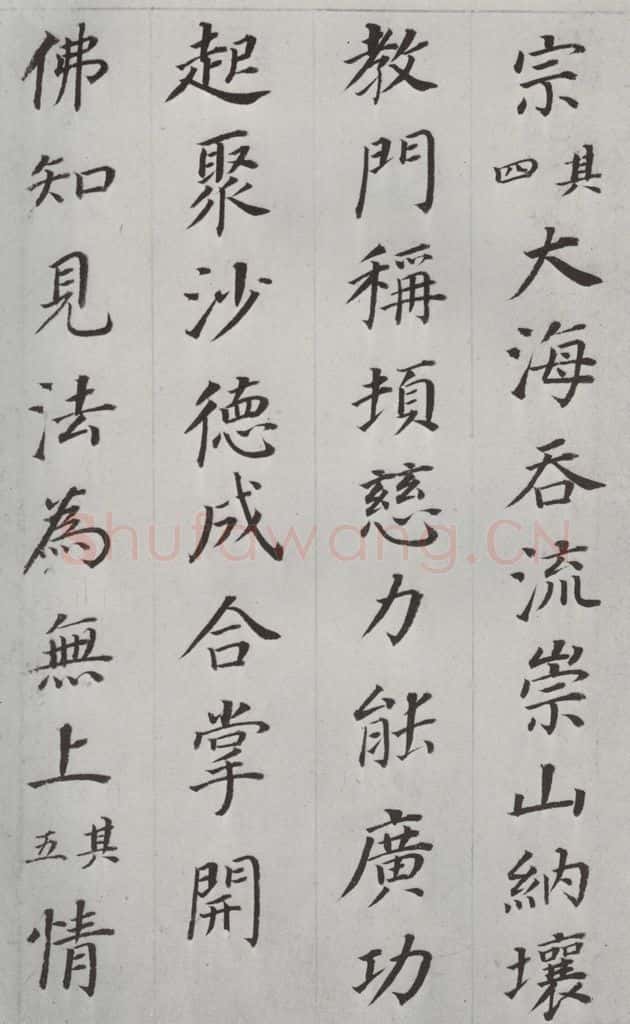 宗其四大海吞流崇山納壤
教門稱頓慈力能廣功
起聚沙德成合掌開
佛知見法為無上其五情
Shufawang.CN